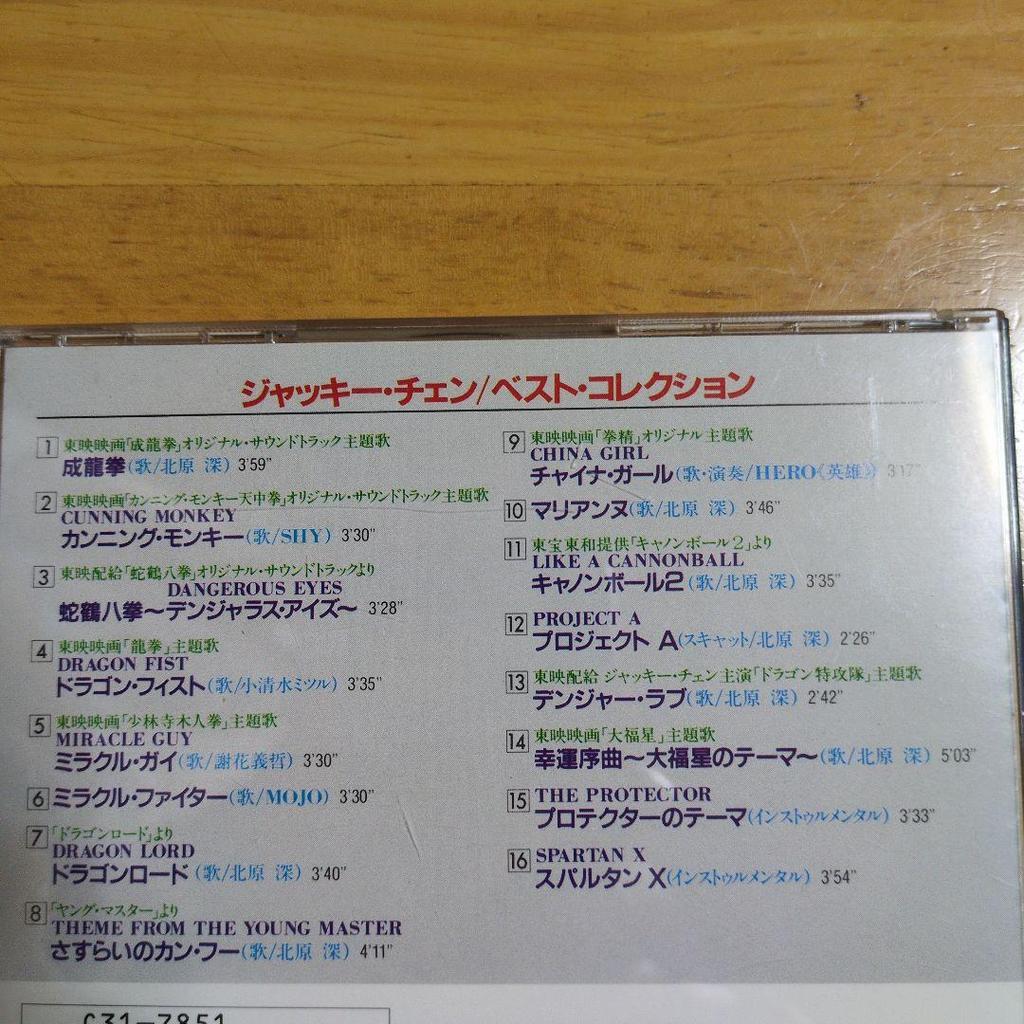 ジャッキー・チェン/ベスト・コレクション
1 東映映画「成龍拳」オリジナル・サウンドトラック主題歌
成龍拳(歌/北原 深) 3'59"
2 東映映画「カンニング・モンキー天中拳」オリジナル・サウンドトラック主題歌
CUNNING MONKEY
カンニング・モンキー(歌/SHY) 3'30"
3 東映配給「蛇鶴八拳」オリジナル・サウンドトラックより
DANGEROUS EYES
蛇鶴八拳〜デンジャラス・アイズ〜 3'28"
4 東映映画「龍拳」主題歌
DRAGON FIST
ドラゴン・フィスト(歌/小清水ミツル) 3'35"
5 東映映画「少林寺木人拳」主題歌
MIRACLE GUY
ミラクル・ガイ(歌/謝花義哲) 3'30"
6 ミラクル・ファイター(歌/MOJO) 3'30"
7 「ドラゴンロード」より
DRAGON LORD
ドラゴンロード(歌/北原 深) 3'40"
8 「ヤング・マスター」より
THEME FROM THE YOUNG MASTER
さすらいのカン・フー(歌/北原 深) 4'11"
9 東映映画「拳精」オリジナル主題歌
CHINA GIRL
チャイナ・ガール(歌・演奏/HERO《英雄》) 3'17"
10 マリアンヌ(歌/北原 深) 3'46"
11 東宝東和提供「キャノンボール2」より
LIKE A CANNONBALL
キャノンボール2(歌/北原 深) 3'35"
12 PROJECT A
プロジェクト A(スキャット/北原 深) 2'26"
13 東映配給 ジャッキー・チェン主演「ドラゴン特攻隊」主題歌
デンジャー・ラブ(歌/北原 深) 2'42"
14 東映映画「大福星」主題歌
幸運序曲〜大福星のテーマ〜(歌/北原 深) 5'03"
15 THE PROTECTOR
プロテクターのテーマ(インストゥルメンタル) 3'33"
16 SPARTAN X
スパルタン X(インストゥルメンタル) 3'54"
C31-7851